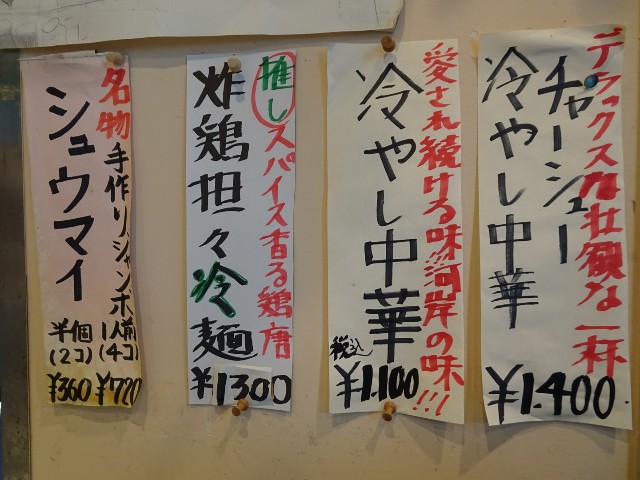 デラックスな壮観な一杯
チャーシュー
冷やし中華
¥1.400
愛され続ける味河岸の味!!!
冷やし中華
税込
¥1.100
推しスパイス香る鶏唐
炸鶏担々冷麺
¥1300
名物手作りジャンボ
シュウマイ
1人前(4コ)
¥720
半個(2コ)
¥360